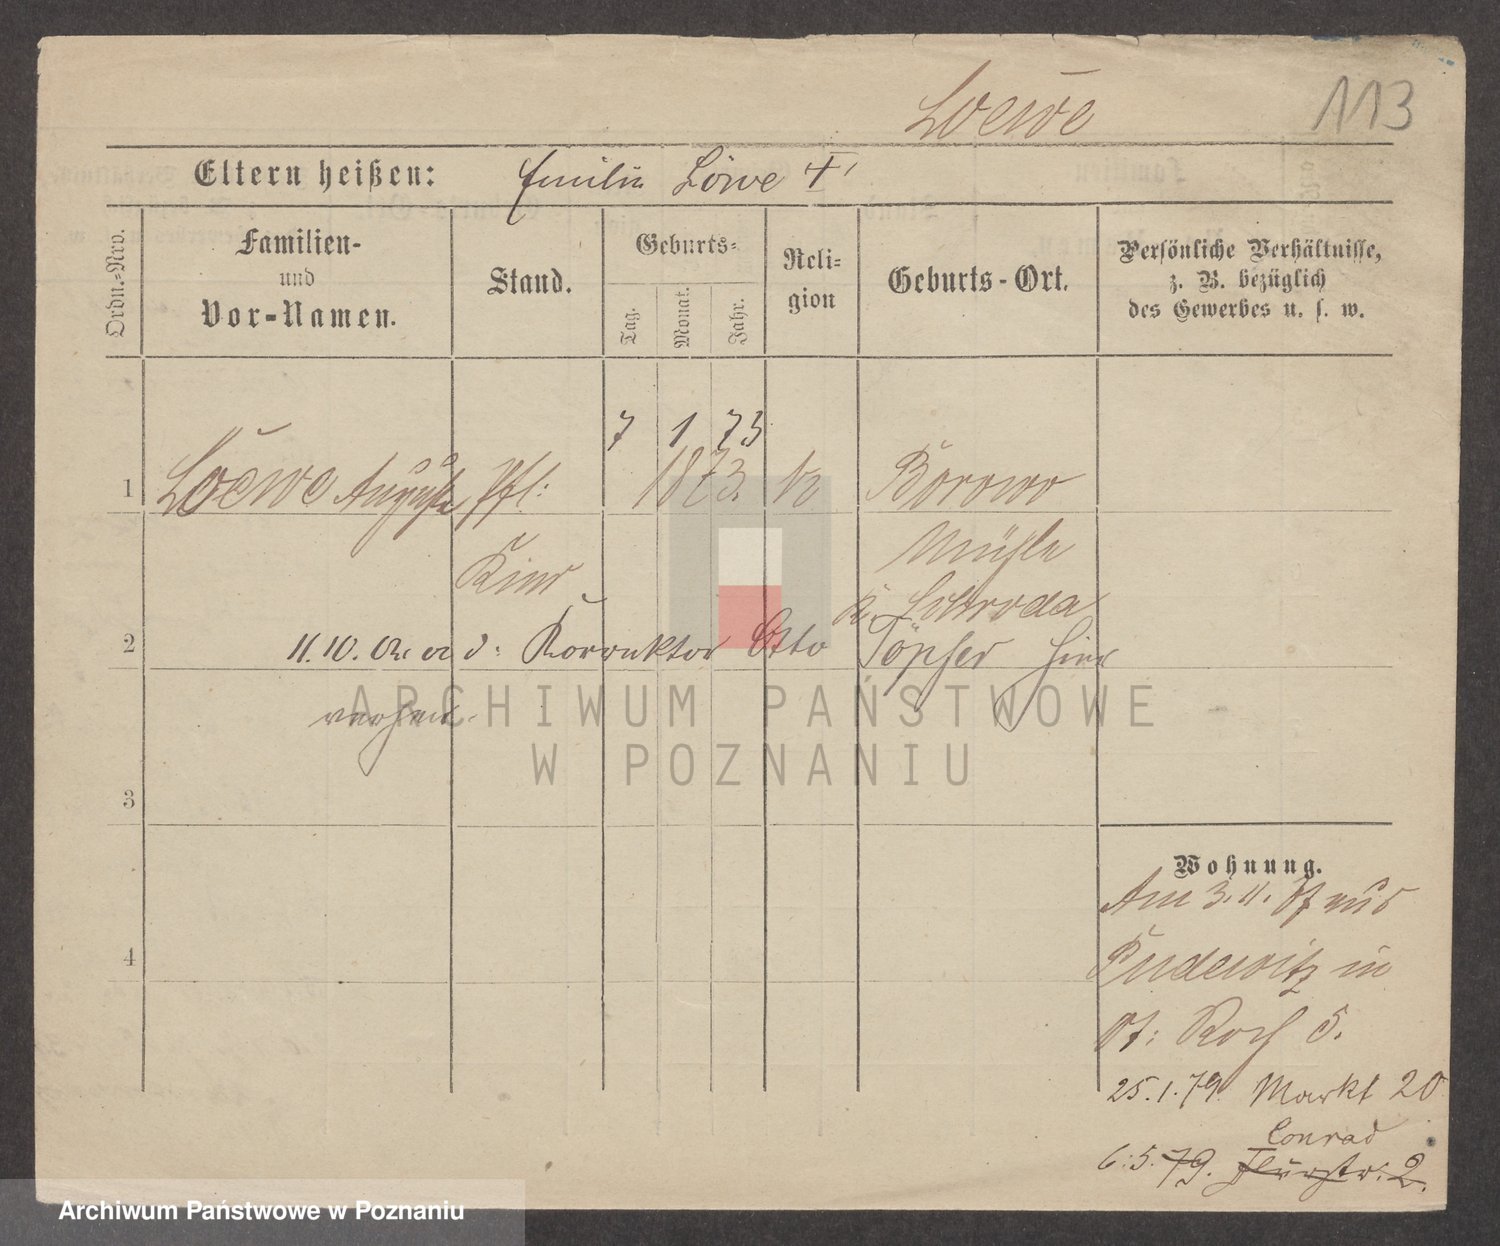 Loewe
113
Eltern heißen: Emilie Löwe †
Ordn.-Nro.
Familien-
und
Vor-Namen.
Stand.
Geburts-
Tag.
Monat.
Jahr.
Reli-
gion
Geburts-Ort.
Persönliche Verhältnisse,
z. B. bezüglich
des Gewerbes u. s. w.
7 1 73
1 Loewe Auguste Pfl: 1873. Borowo
Kind Mühle
2 11.10. d. Korrektor Otto Töpfer hier
verheir.
3
Wohnung.
Am 3.11. aus
4 Pudewitz in
St: Roch 5.
25.1.79. Markt 20
Conrad
6.5.79. Flurstr. 2.
ARCHIWUM PAŃSTWOWE
W POZNANIU
Archiwum Państwowe w Poznaniu